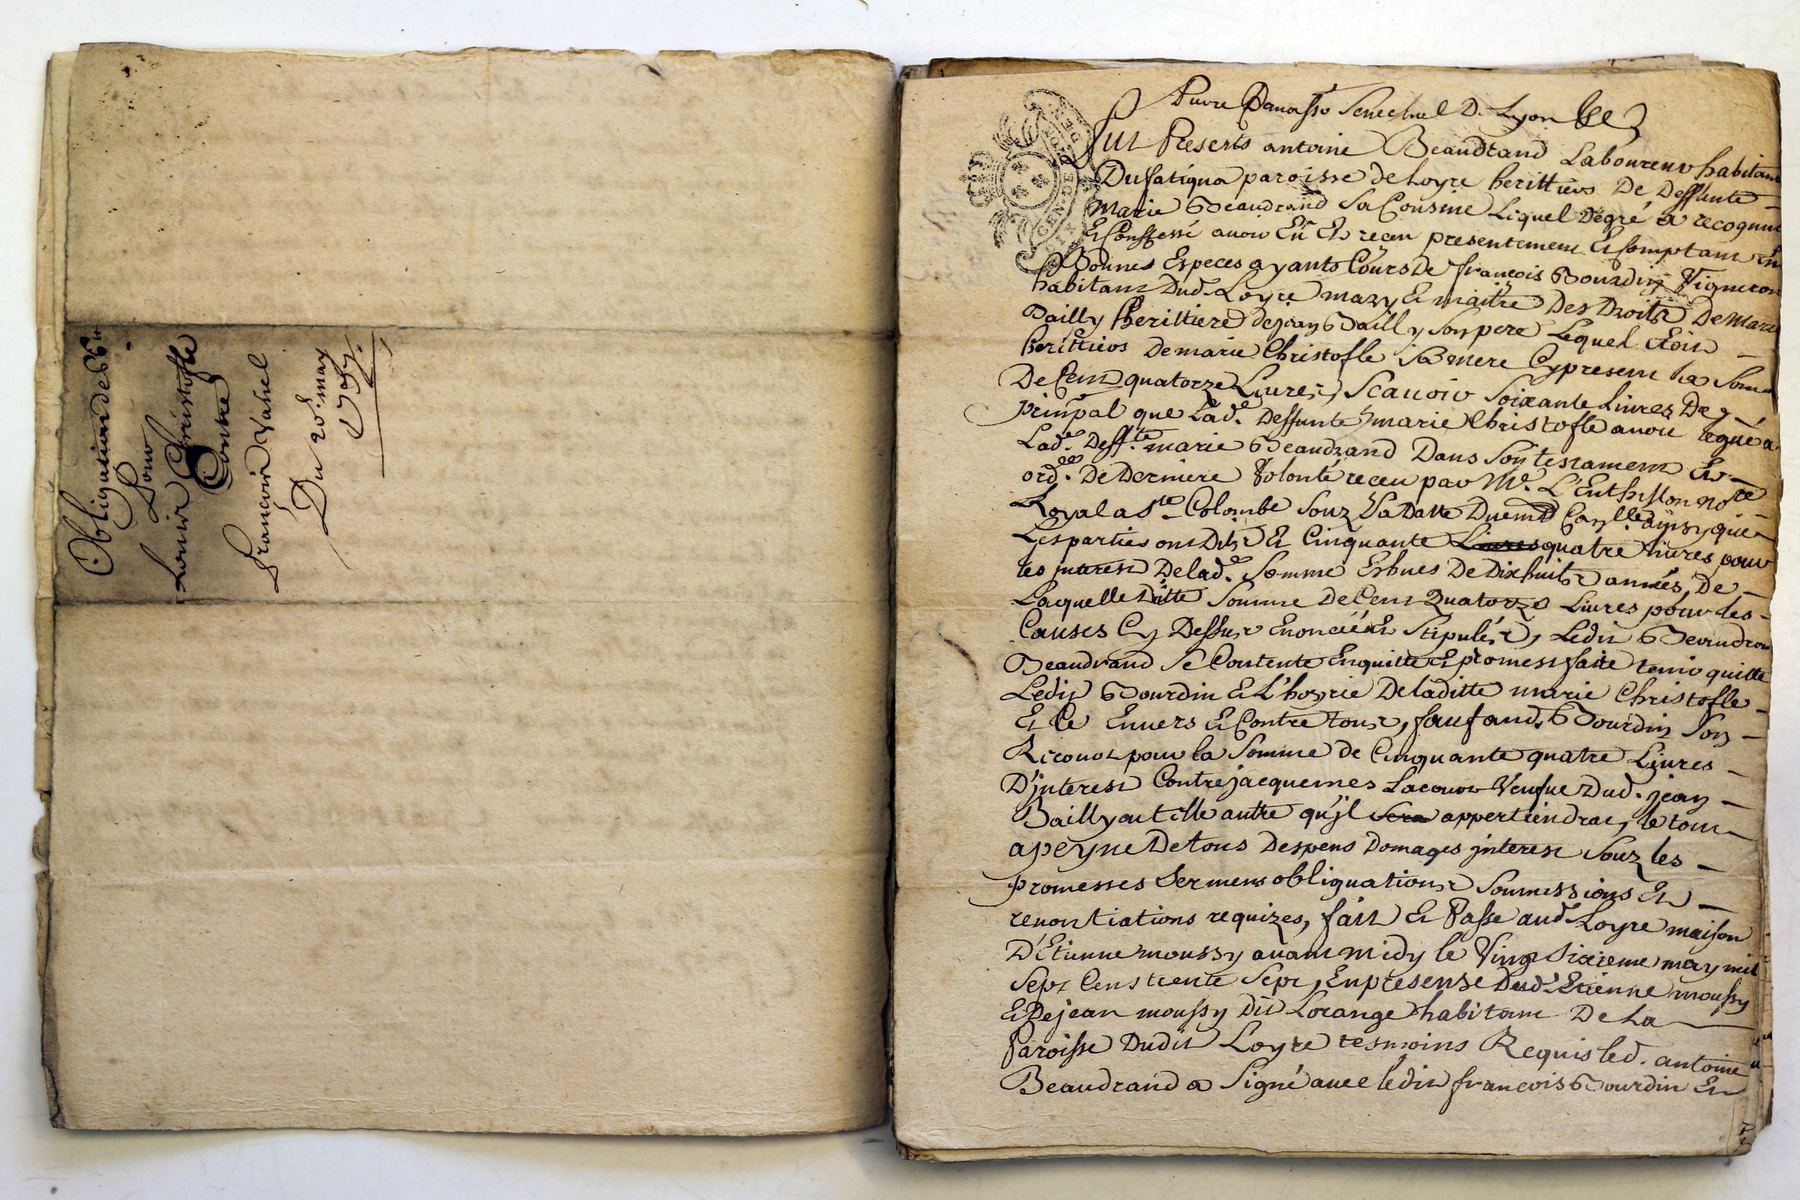 Obligation de 66 #
Pour
Louis Christofle
Contre
François Vanel
Du 20e. may
GEN. DE
Senechal D. Lyon
Fut Presents antoine Beaudrand Laboureur habitant
Du paroisse de Loyre herittiers De Deffunte
Marie Beaudrand Sa Cousine Lequel Degré a recognu
Et Conffessé avoir Eu Et receu presentement Et Comptant En
Bonnes Especes ayants Cours De françois Bourdin Vigneron
habitant Dud. Loyre mary Et maitre Des Droits De Marie
Bailly herittiere de jean Bailly Son pere Lequel Etoit
herittiers de marie Christofle Sa mere Cy present La Somme
De Cent quatorze Livres, Scavoir Soixante Livres De
prinpal que Lade. Deffunte marie Christofle avoit legué a
Lade. Deffte. marie Beaudrand Dans Son testament Et
ordce. De Derniere Volonté receu par Me. L'Enthillon nore
Royal a Ste. Colombe Souz La Datte Du
Les parties ont Dit Et Cinquante Livres quatre livres pour
les interest De lade. Somme Eshues De Dixhuit années, De
Laquelle Ditte Somme De Cent Quatorze Livres pour les
Causes Cy Dessus Enoncées Et Stipulés, Ledit
Beaudrand Se Contente Enquitte Et promest faire tenir quitte
Ledit Bourdin Et L'hoyrie De laditte marie Christofle
Et Ce Envers Et Contre tous, Sauf aud. Bourdin Son
Recours pour la Somme de Cinquante quatre Livres
D'interest Contre jacquemes Lacour Veufue Dud. jean
Bailly ou telle autre qu'jl Sera appertiendrat, le tout
a peyne De tous Despens Domages jnterest Souz les
promesses Sermens obliquations Soumissions Et
renontiations requizes, fait Et Passe aud. Loyre maison
D'Etienne moussy avant midy le Vingt Sixieme may mil
Sept Cens trente Sept, En presense Dud. Etienne moussy
Et De jean moussy Dit Lorange habitant De La
Paroisse Dudit Loyre tesmoins Requis led. antoine
Beaudrand a Signé avec ledit françois Bourdin Et